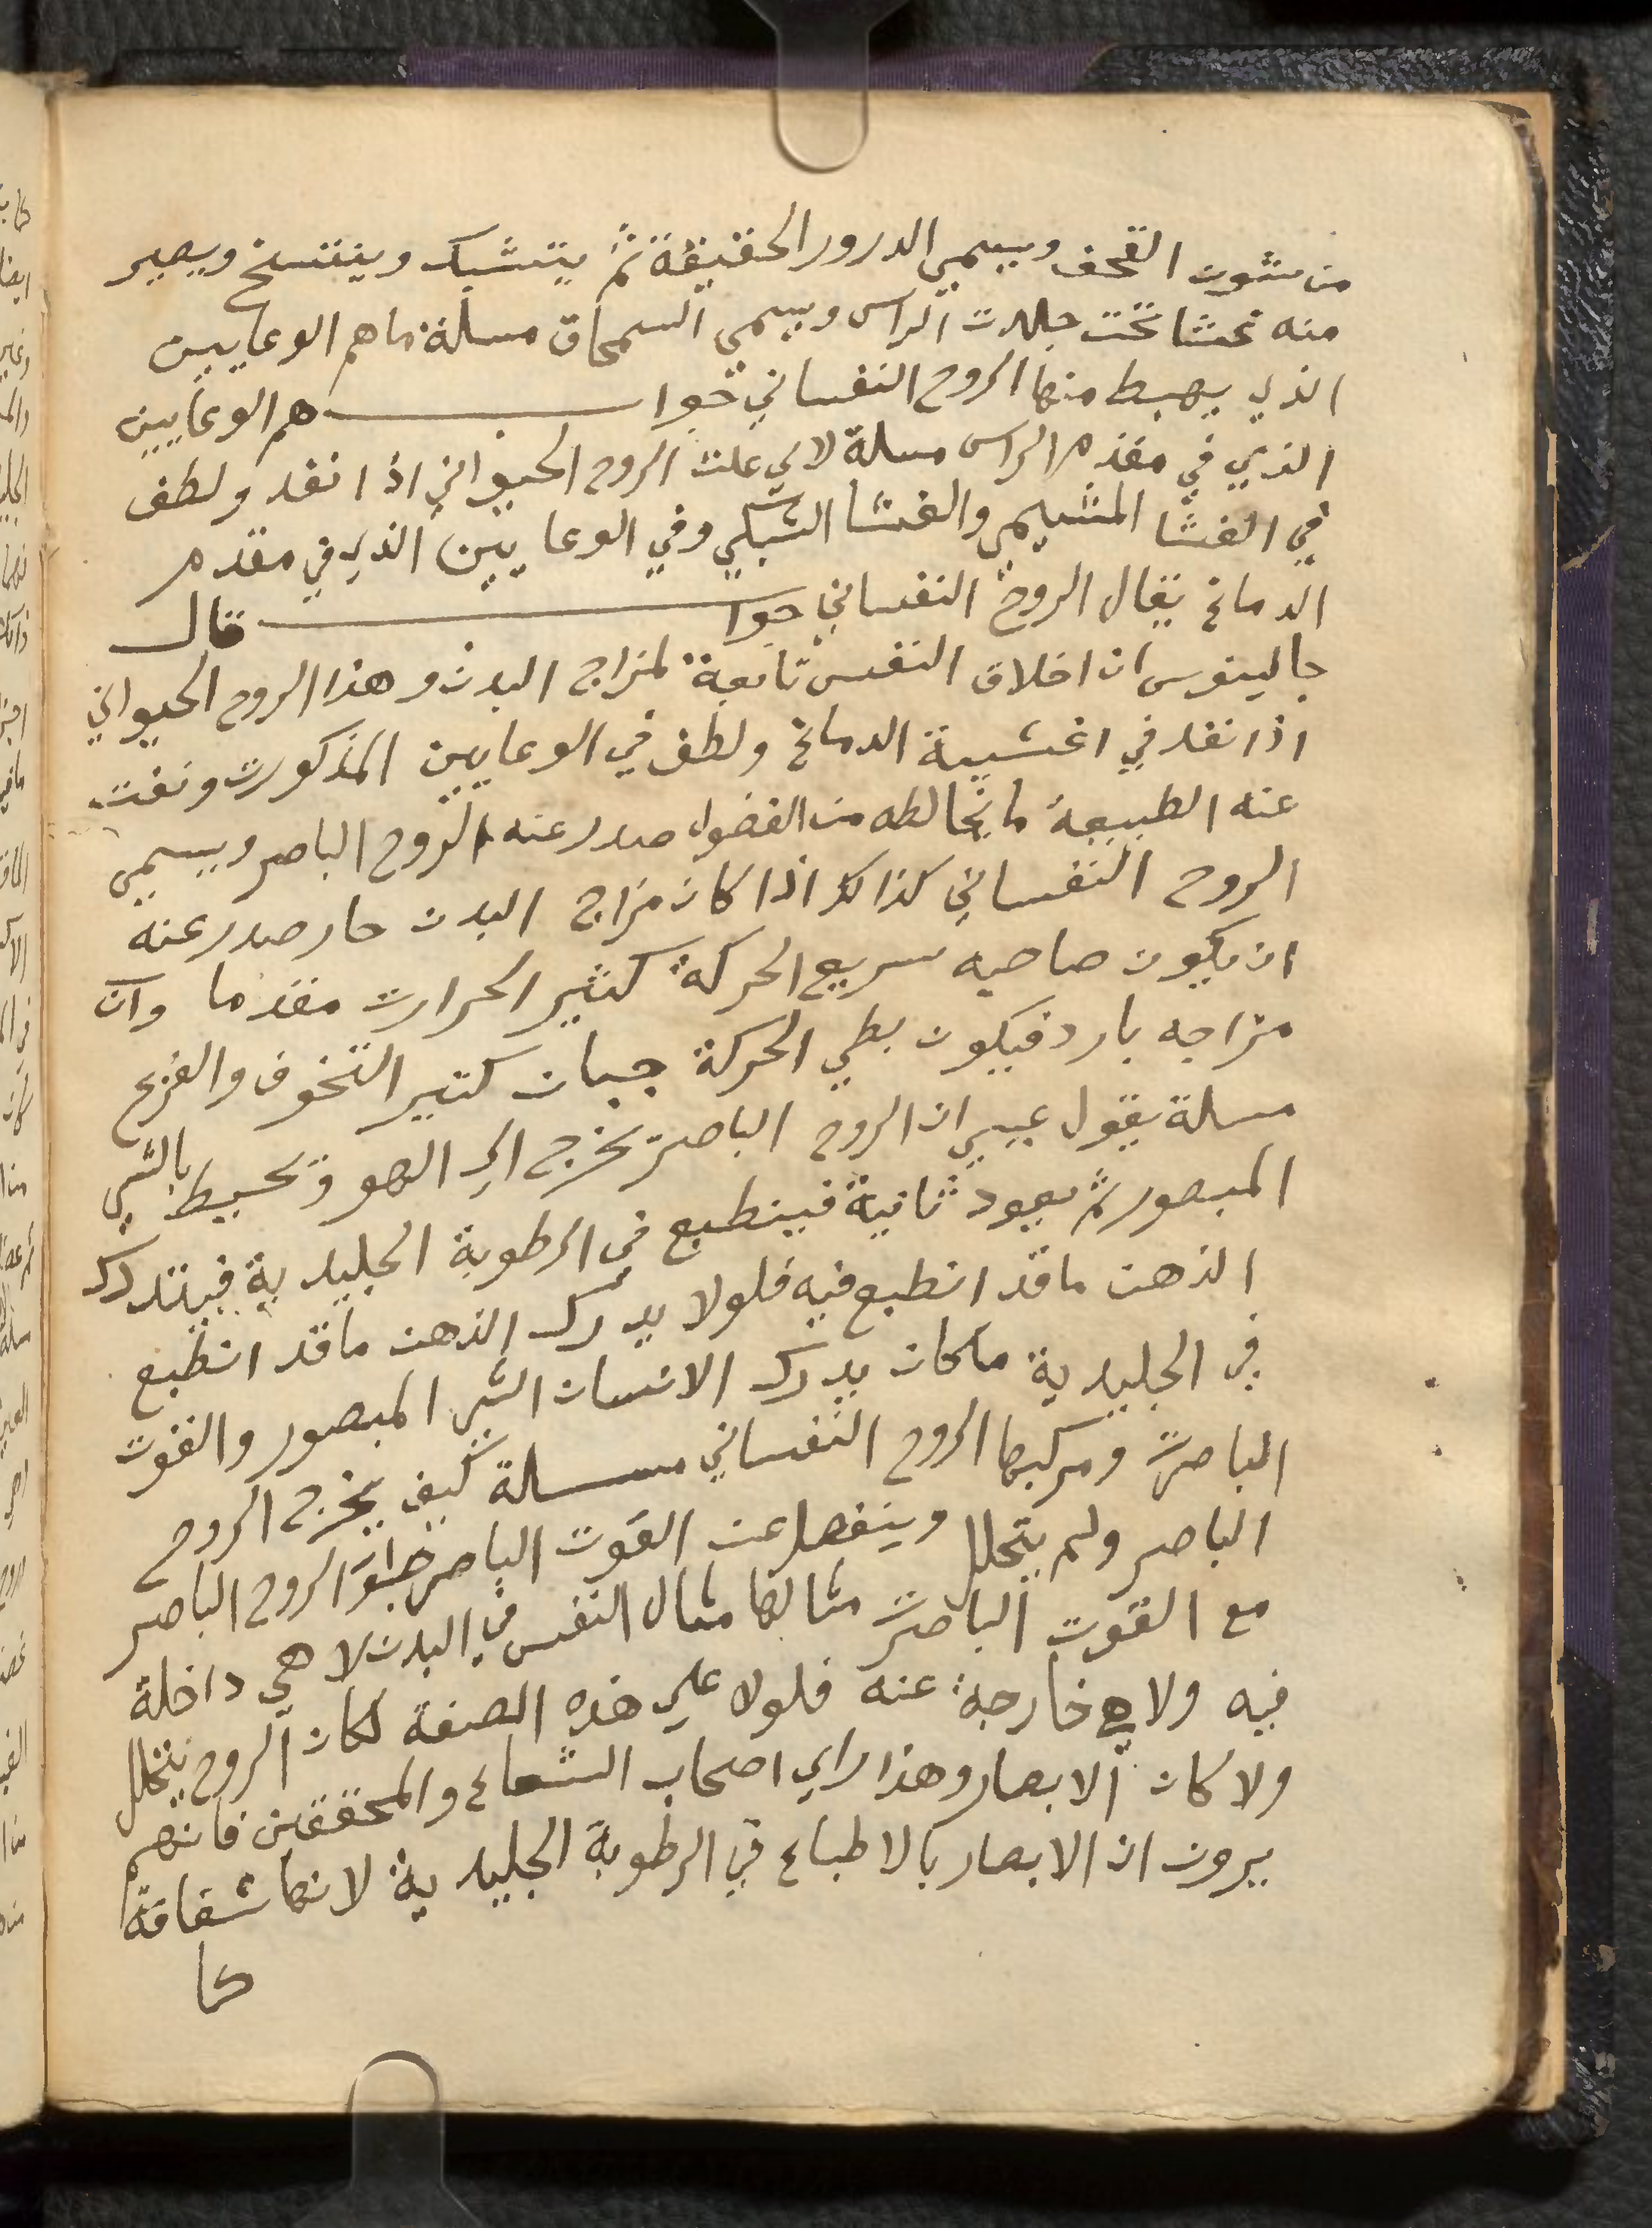 من شوت القحف ويسمي الدرور الحقيقة ثم يتشبك وينتسج ويصير
منه غشا تحت جلدت الراس ويسمي السمحاق مسلة ما هم الوعايين
الذي يهبط منها الروح النفساني جوا هم الوعايين
الذي في مقدم الراس مسلة لاي علت الروح الحيواني اذا نفد ولطف
في الغشا المشيمي والغشا الشبكي وفي الوعايين الذي في مقدم
الدماغ يقال الروح النفساني جوا قال
جالينوس ان اخلاق النفس تابعة لمزاج البدن وهذا الروح الحيواني
اذا نفد في اغشيية الدماغ ولطف في الوعايين المذكورت ونفت
عنه الطبيعة ما يخالطه من الفضول صدر عنه الروح الباصر ويسمي
الروح النفساني كذالك اذا كان مزاج البدن حار صدر عنه
ان يكون صاحبه سريع الحركة كثير الحرارت مقدما وان
مزاجه بارد فيكون بطي الحركة جبان كتير التخوف والفزع
مسلة يقول عيسي ان الروح الباصرة يخرج الي الهو وتحيط بالشي
المبصور ثم يعود ثانية فينطبع في الرطوبة الجليدية فيتدرك
الذهن ما قد انطبع فيه فلولا يدرك الذهن ما قد انطبع
في الجليدية ماكان يدرك الانسان الشي المبصور والقوت
الباصرت ومركبها الروح النفساني مسلة كيف يخرج الروح
الباصر ولم يتحلل وينفصل عن القوت الباصر جوا الروح الباصر
مع القوت الباصرت مثالها مثال النفس في البدن لا هي داخلة
فيه ولا هي خارجة عنه فلولا علي هذه الصفة لكان الروح يتحلل
ولا كان الابصار وهذا راي اصحاب الشعاع والمحققين فانهم
يرون ان الابصار بالاطباع في الرطوبة الجليدية لانها شفافة
كا